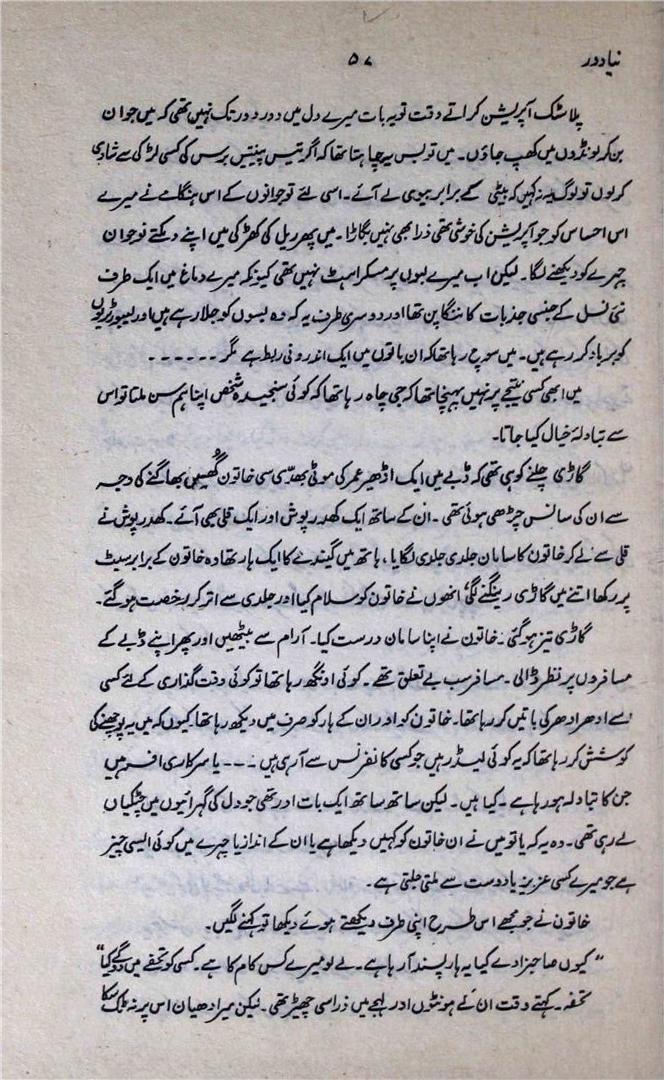 نیا دور
۵۷
پلاسٹک آپریشن کراتے وقت تو یہ بات میرے دل میں دور دور تک نہیں تھی کہ میں جوان
بن کر لونڈوں میں کھپ جاؤں۔ میں تو بس یہ چاہتا تھا کہ اگر تیس پینتیس برس کی کسی لڑکی سے شادی
کر لوں تو لوگ یہ نہ کہیں کہ بیٹی کے برابر بیوی لے آئے۔ اسی لئے نوجوانوں کے اس ہنگامے نے میرے
اس احساس کو جو آپریشن کی خوشی تھی ذرا بھی نہیں بگاڑا۔ میں پھر ریل کی کھڑکی میں اپنے دمکتے نوجوان
چہرے کو دیکھنے لگا۔ لیکن اب میرے لبوں پر مسکراہٹ نہیں تھی کیونکہ میرے دماغ میں ایک طرف
نئی نسل کے جنسی جذبات کا ننگا پن تھا اور دوسری طرف یہ کہ وہ بسوں کو جلا رہے ہیں اور لیبوریٹریوں
کو برباد کر رہے ہیں۔ میں سوچ رہا تھا کہ ان باتوں میں ایک اندرونی ربط ہے مگر ۔۔۔۔۔۔
میں ابھی کسی نتیجے پر نہیں پہنچا تھا کہ جی چاہ رہا تھا کہ کوئی سنجیدہ شخص اپنا ہم سن ملتا تو اس
سے تبادلۂ خیال کیا جاتا۔
گاڑی چلنے کو ہی تھی کہ ڈبے میں ایک اڈھیر عمر کی موٹی بھدّی سی خاتون گھسیں بھاگنے کی وجہ
سے ان کی سانس چڑھی ہوئی تھی۔ ان کے ساتھ ایک کھدر پوش اور ایک قلی بھی آئے۔ کھدر پوش نے
قلی سے لے کر خاتون کا سامان جلدی جلدی لگایا، ہاتھ میں گیندے کا ایک ہار تھا وہ خاتون کے برابر سیٹ
پر رکھا اتنے میں گاڑی رینگنے لگی، انھوں نے خاتون کو سلام کیا اور جلدی سے اتر کر رخصت ہو گئے۔
گاڑی تیز ہو گئی۔ خاتون نے اپنا سامان درست کیا۔ آرام سے بیٹھیں اور پھر اپنے ڈبے کے
مسافروں پر نظر ڈالی۔ مسافر سب بے تعلق تھے۔ کوئی اونگھ رہا تھا تو کوئی وقت گذاری کے لئے کسی
سے ادھر ادھر کی باتیں کر رہا تھا۔ خاتون کو اور ان کے ہار کو صرف میں دیکھ رہا تھا۔ کیوں کہ میں یہ پوچھنے کی
کوشش کر رہا تھا کہ یہ کوئی لیڈر ہیں جو کسی کانفرنس سے آ رہی ہیں ۔۔۔ یا سرکاری افسر ہیں
جن کا تبادلہ ہو رہا ہے۔ کیا ہیں۔ لیکن ساتھ ساتھ ایک بات اور تھی جو دل کی گہرائیوں میں چٹکیاں
لے رہی تھی۔ وہ یہ کہ یا تو میں نے ان خاتون کو کہیں دیکھا ہے یا ان کے انداز یا چہرے میں کوئی ایسی چیز
ہے جو میرے کسی عزیز یا دوست سے ملتی جلتی ہے۔
خاتون نے جو مجھے اس طرح اپنی طرف دیکھتے ہوئے دیکھا تو کہنے لگیں۔
"کیوں صاحبزادے کیا یہ ہار پسند آ رہا ہے۔ لے لو میرے کس کام کا ہے۔ کسی کو تحفے میں دو گے کیا"
تحفہ۔ کہتے وقت ان کے ہونٹوں اور لہجے میں ذرا سی چھیڑ تھی۔ لیکن میرا دھیان اس پر نہ ٹک سکا